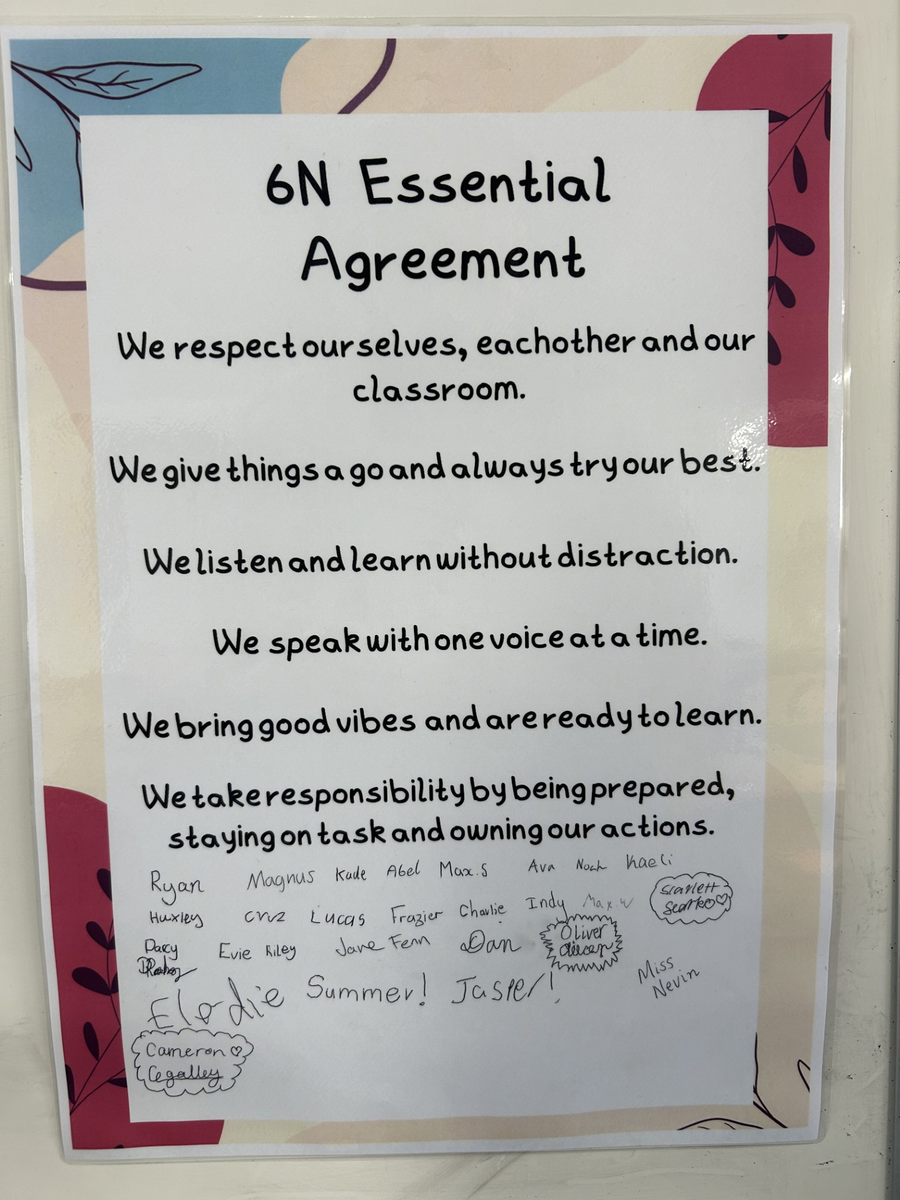 6N Essential
Agreement
We respect ourselves, eachother and our
classroom.
We give things a go and always try our best.
We listen and learn without distraction.
We speak with one voice at a time.
We bring good vibes and are ready to learn.
We take responsibility by being prepared,
staying on task and owning our actions.
Ryan Magnus Kade Abel Max.S Ava Noah Kaeli
Huxley Cruz Lucas Frazier Charlie Indy Max.W Scarlett
Darcy Evie Riley Jave Fenn Dan Oliver
Elodie Summer! Jasper! Miss
Nevin
Cameron